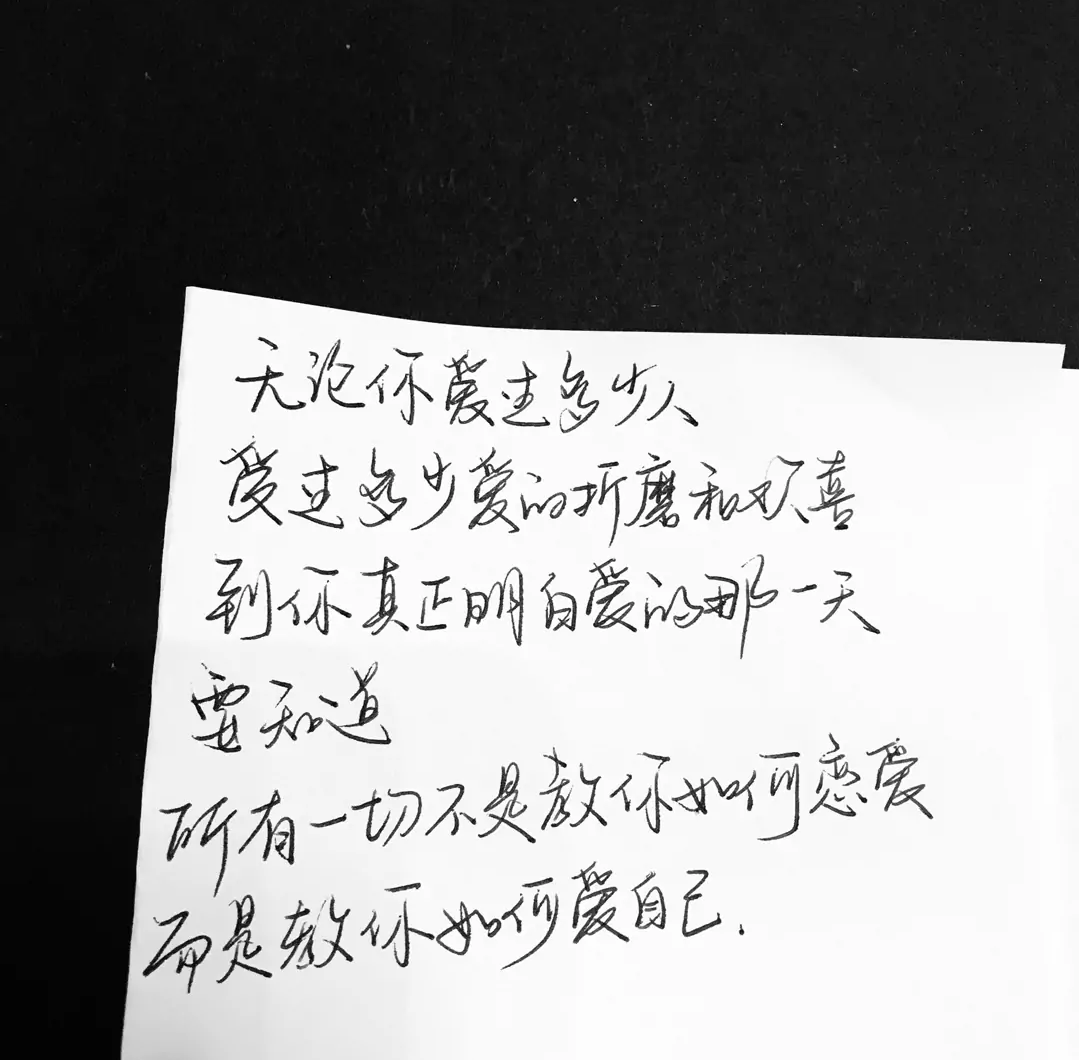 无论你爱过多少人
爱过多少爱的折磨和欢喜
到你真正明白爱的那一天
要知道
所有一切不是教你如何恋爱
而是教你如何爱自己.